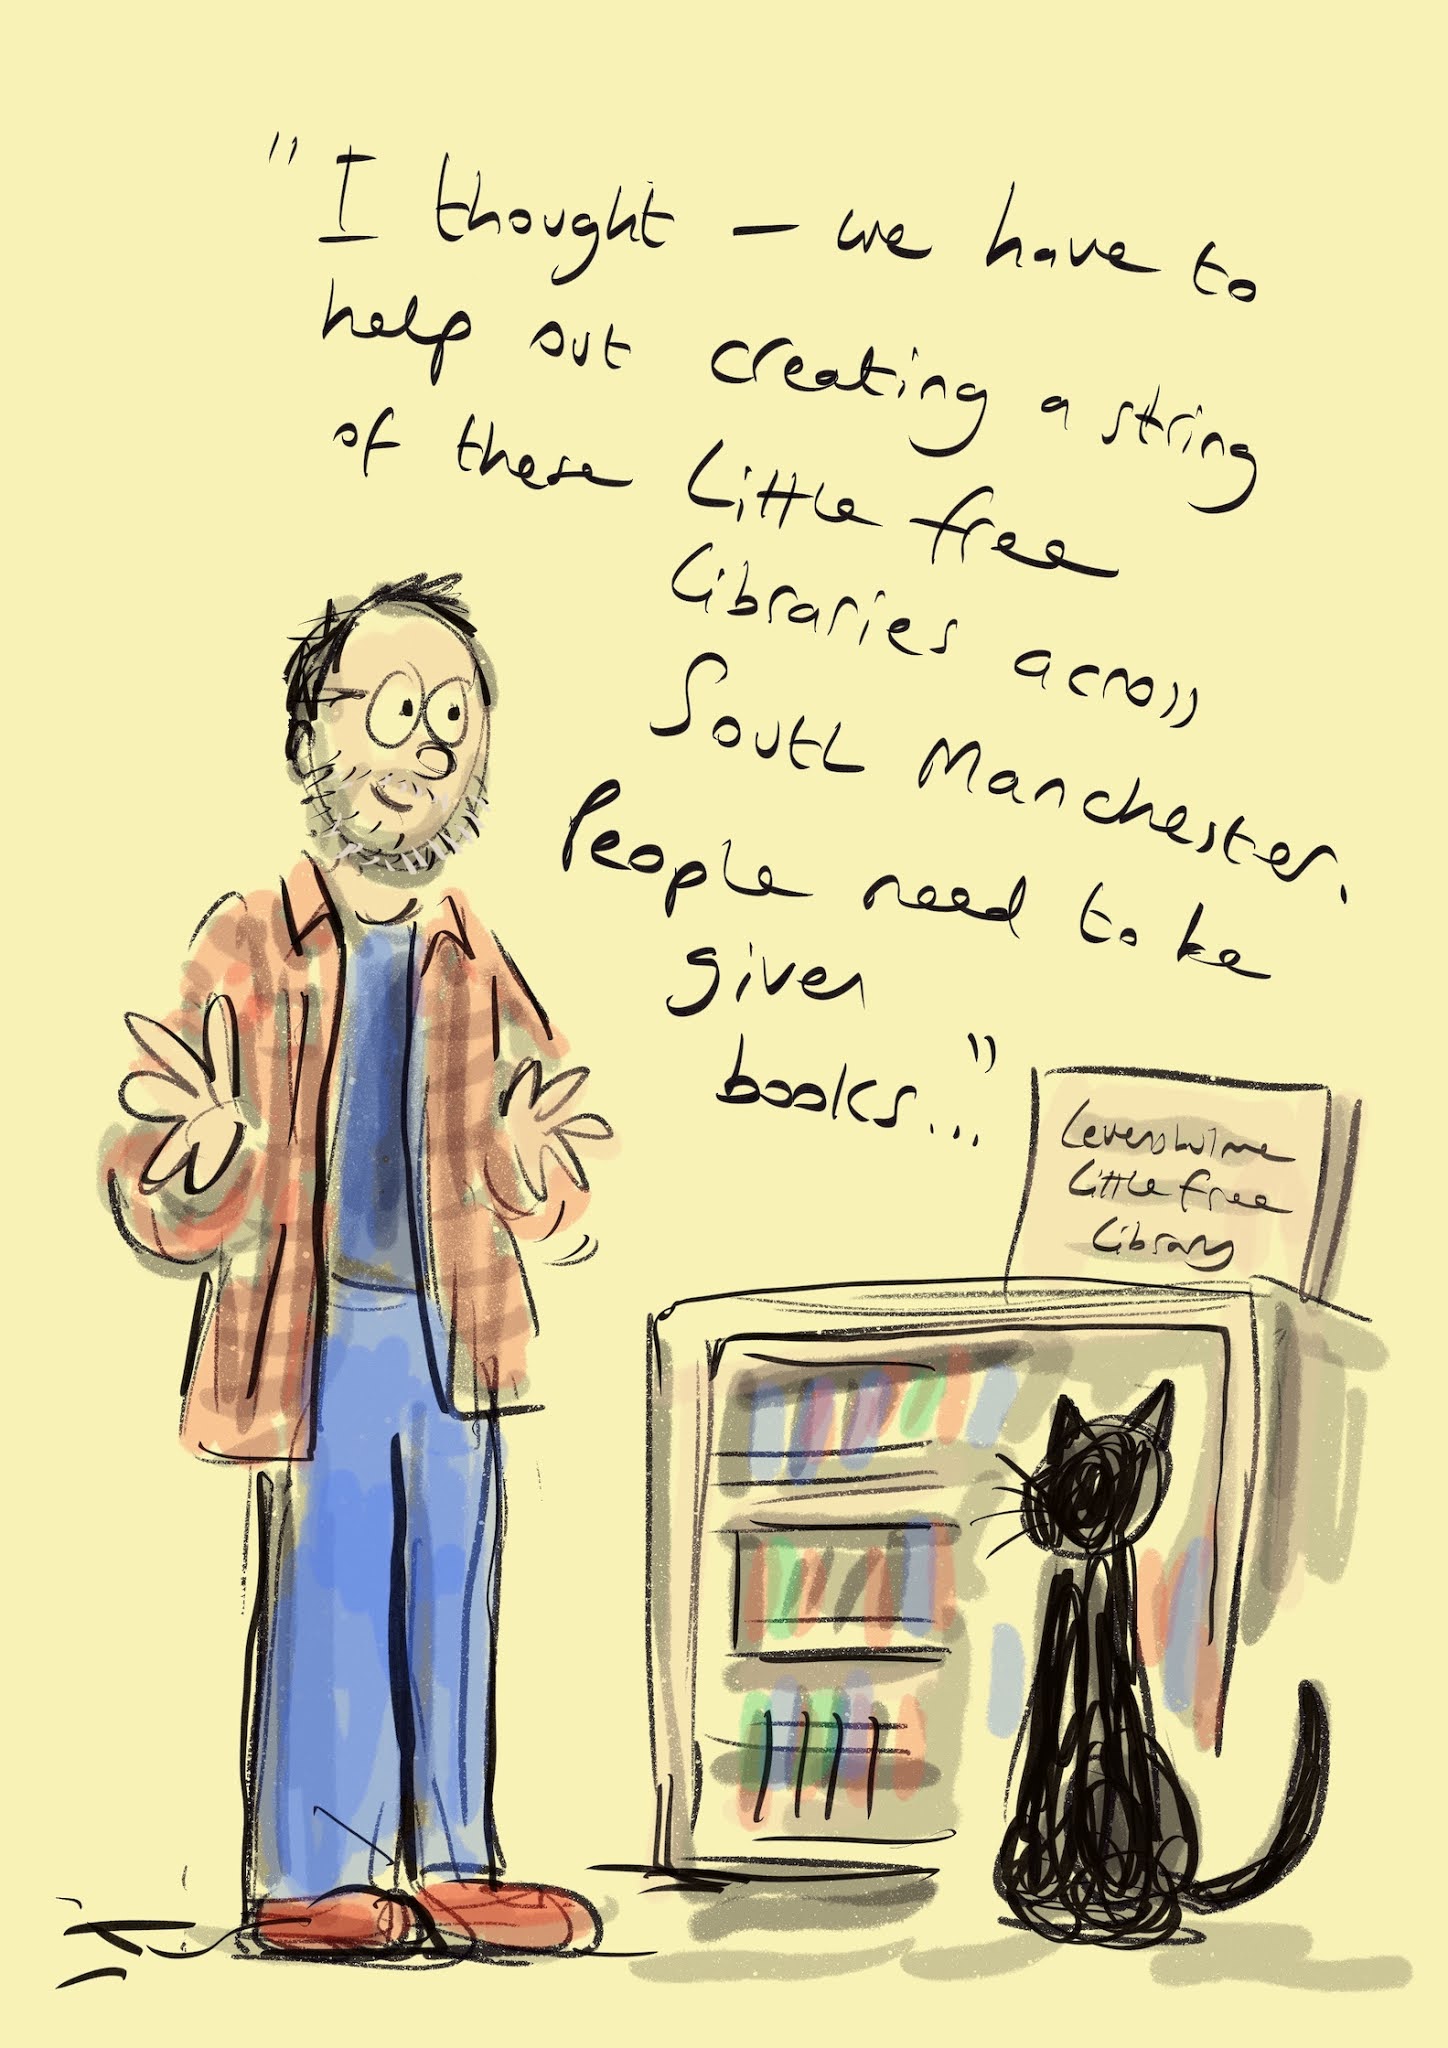 "I thought – we have to
help out creating a string
of these Little free
Libraries across
South Manchester.
People need to be
given
books..."
Levenshulme
Little free
Library